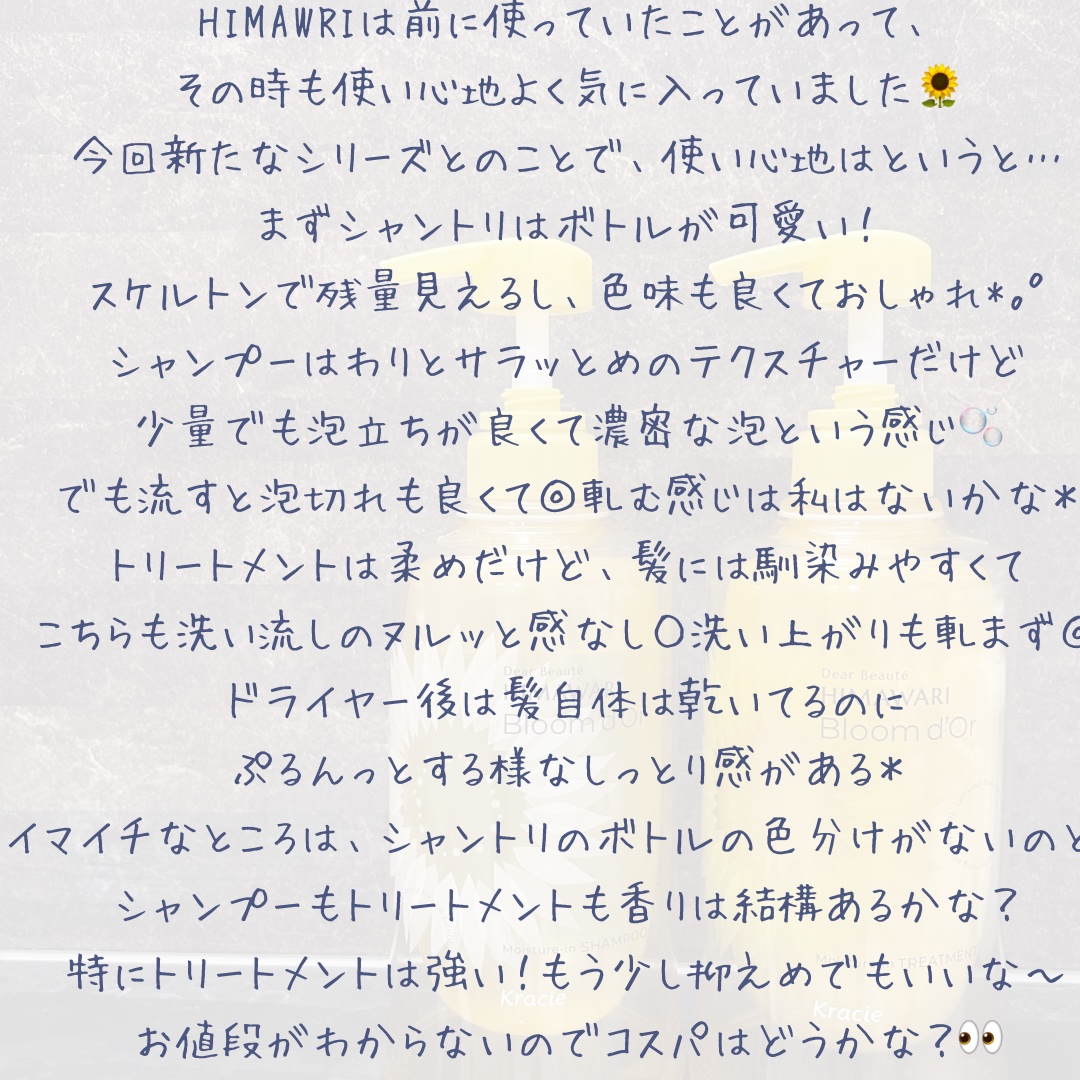 HIMAWRIは前に使っていたことがあって、
その時も使い心地よく気に入っていました🌻
今回新たなシリーズとのことで、使い心地はというと…
まずシャントリはボトルが可愛い！
スケルトンで残量見えるし、色味も良くておしゃれ*｡ﾟ
シャンプーはわりとサラッとめのテクスチャーだけど
少量でも泡立ちが良くて濃密な泡という感じ🫧
でも流すと泡切れも良くて◎軋む感じは私はないかな*
トリートメントは柔めだけど、髪には馴染みやすくて
こちらも洗い流しのヌルッと感なし〇洗い上がりも軋まず◎
ドライヤー後は髪自体は乾いてるのに
ぷるんっとする様なしっとり感がある*
イマイチなところは、シャントリのボトルの色分けがないのと
シャンプーもトリートメントも香りは結構あるかな？
特にトリートメントは強い！もう少し抑えめでもいいな〜
お値段がわからないのでコスパはどうかな？👀
Dear Beauté
HIMAWARI
Bloom d'Or
Moisture-in SHAMPOO
Kracie
Dear Beauté
HIMAWARI
Bloom d'Or
Moisture-in TREATMENT
Kracie